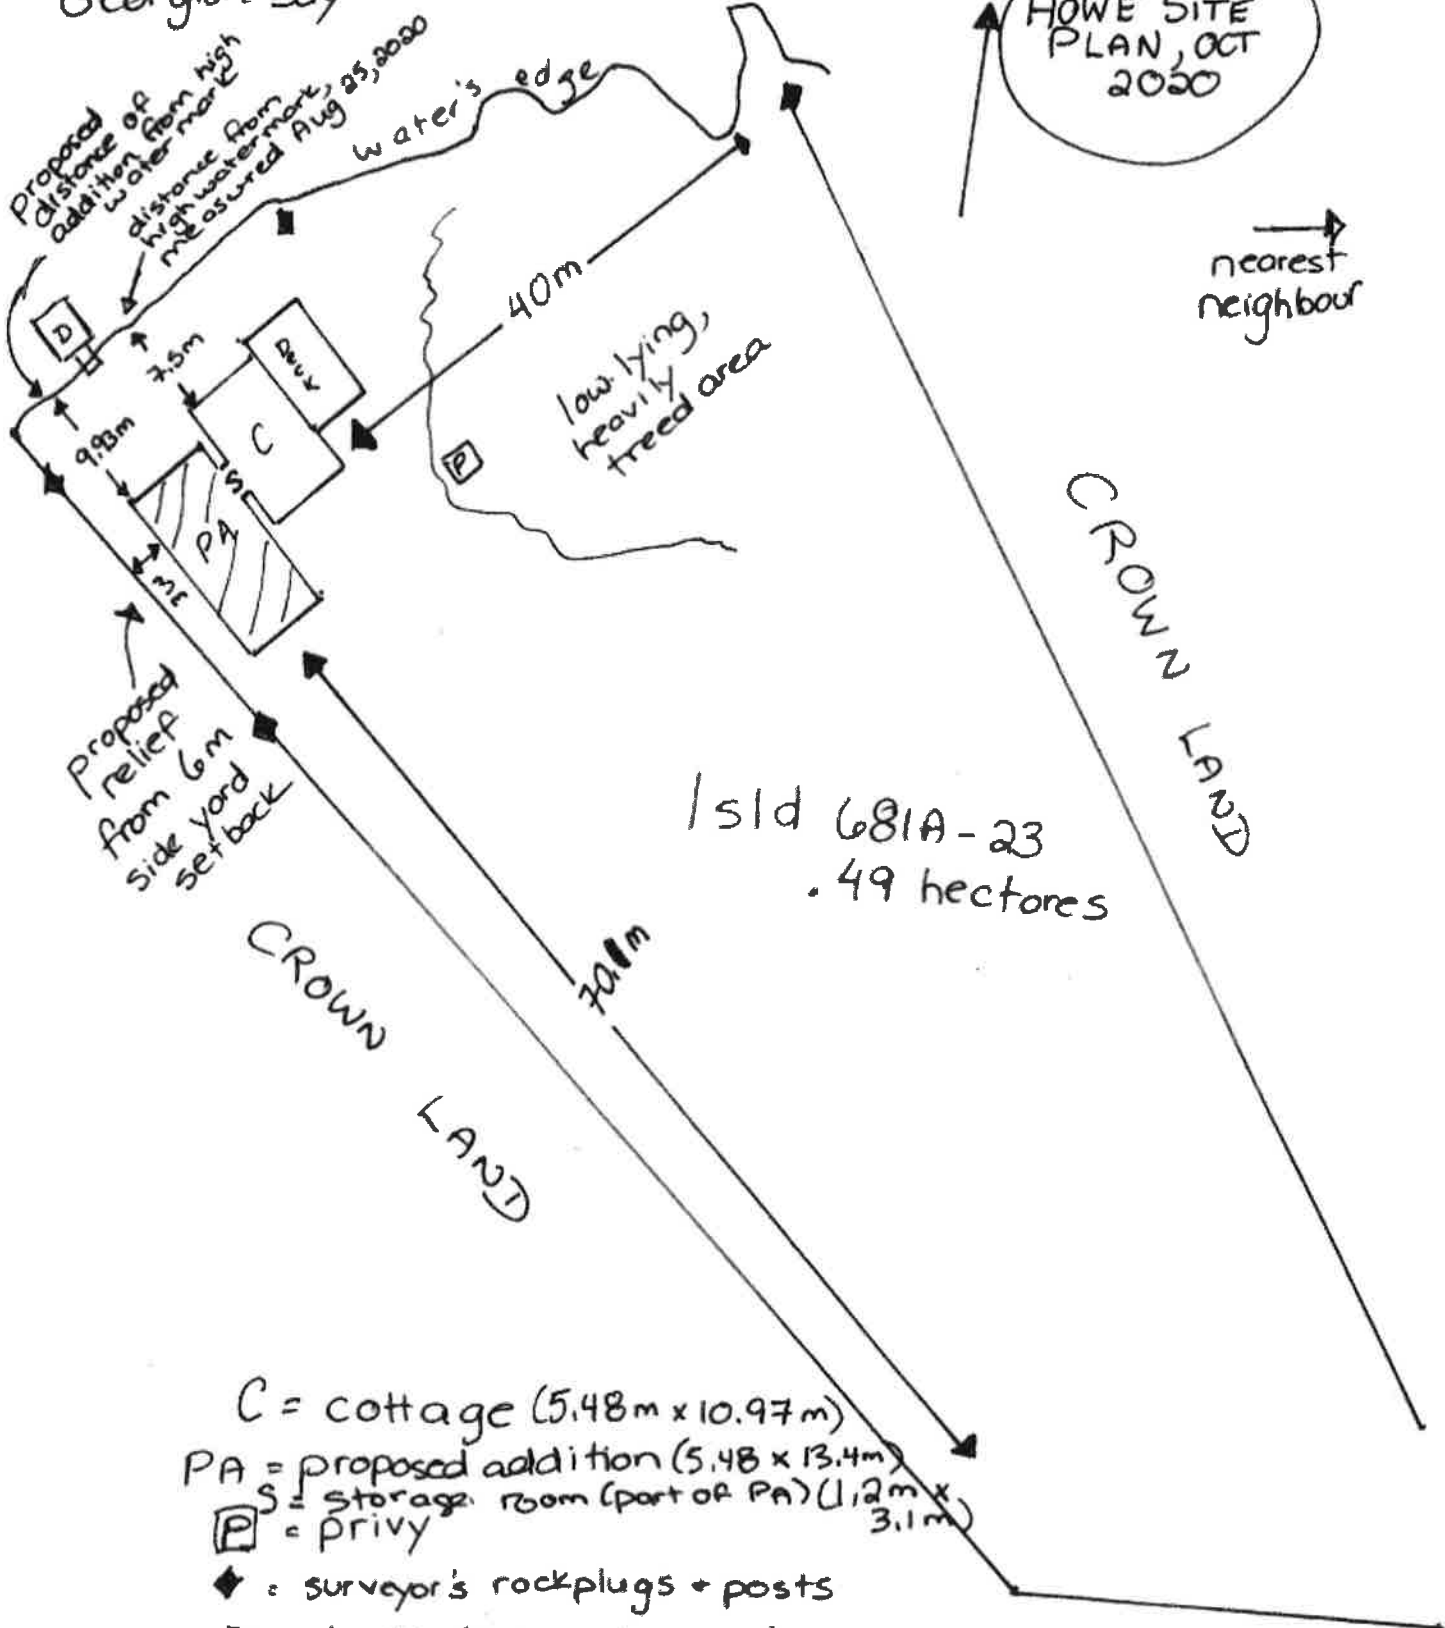 HOWE SITE
PLAN, OCT
2020
proposed
distance of
addition from high
water mark
distance from
high water mark,
measured Aug 25, 2020
water's edge
nearest
neighbour
D
7.5m
Deck
40m
low-lying,
heavily
treed area
C
9.93m
S
P
PA
3m
proposed
relief
from 6m
side yard
setback
CROWN LAND
Isld 681A-23
.49 hectares
70.1m
CROWN LAND
C = cottage (5.48m x 10.97m)
PA = proposed addition (5.48 x 13.4m)
S = storage room (part of PA) (1.2m x
3.1m)
P = privy
= surveyor's rockplugs + posts